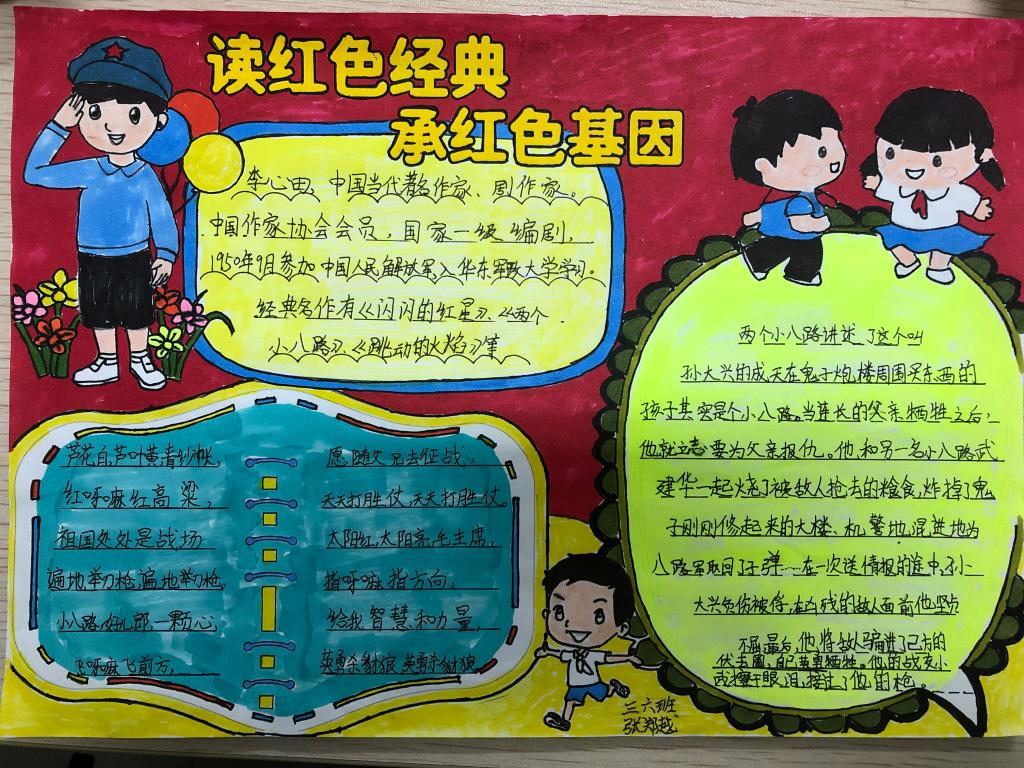 读红色经典
承红色基因
李心田、中国当代著名作家、剧作家。
中国作家协会会员，国家一级编剧，
1950年9月参加中国人民解放军入华东军政大学学习。
经典名作有《闪闪的红星》、《两个
小八路》、《跳动的火焰》等
芦花白，芦叶黄，青纱帐，
红呼嘛红高粱，
祖国处处是战场
遍地举刀枪，遍地举刀枪。
小八路，好儿郎，一颗心，
飞呀嘛飞前方，
愿随父兄去征战，
天天打胜仗，天天打胜仗。
太阳红，太阳亮，毛主席，
指呼嘛指方向，
给我智慧和力量，
英勇杀豺狼，英勇杀豺狼。
两个小八路讲述了这个叫
孙大兴的成天在鬼子炮楼周围买东西的
孩子其实是个小八路。当连长的父亲牺牲之后，
他就立志要为父亲报仇。他和另一名小八路武
建华一起烧了被敌人抢去的粮食，炸掉了鬼
子刚刚修起来的大楼、机警地混进地为
八路军取回了子弹……在一次送情报的途中，孙
大兴负伤被俘，在凶残的敌人面前他坚贞
不屈，最后，他将敌人骗进了己方的
伏击圈，自己英勇牺牲。他的战友小
武擦干眼泪，接过了他的枪。
三六班
张郑越